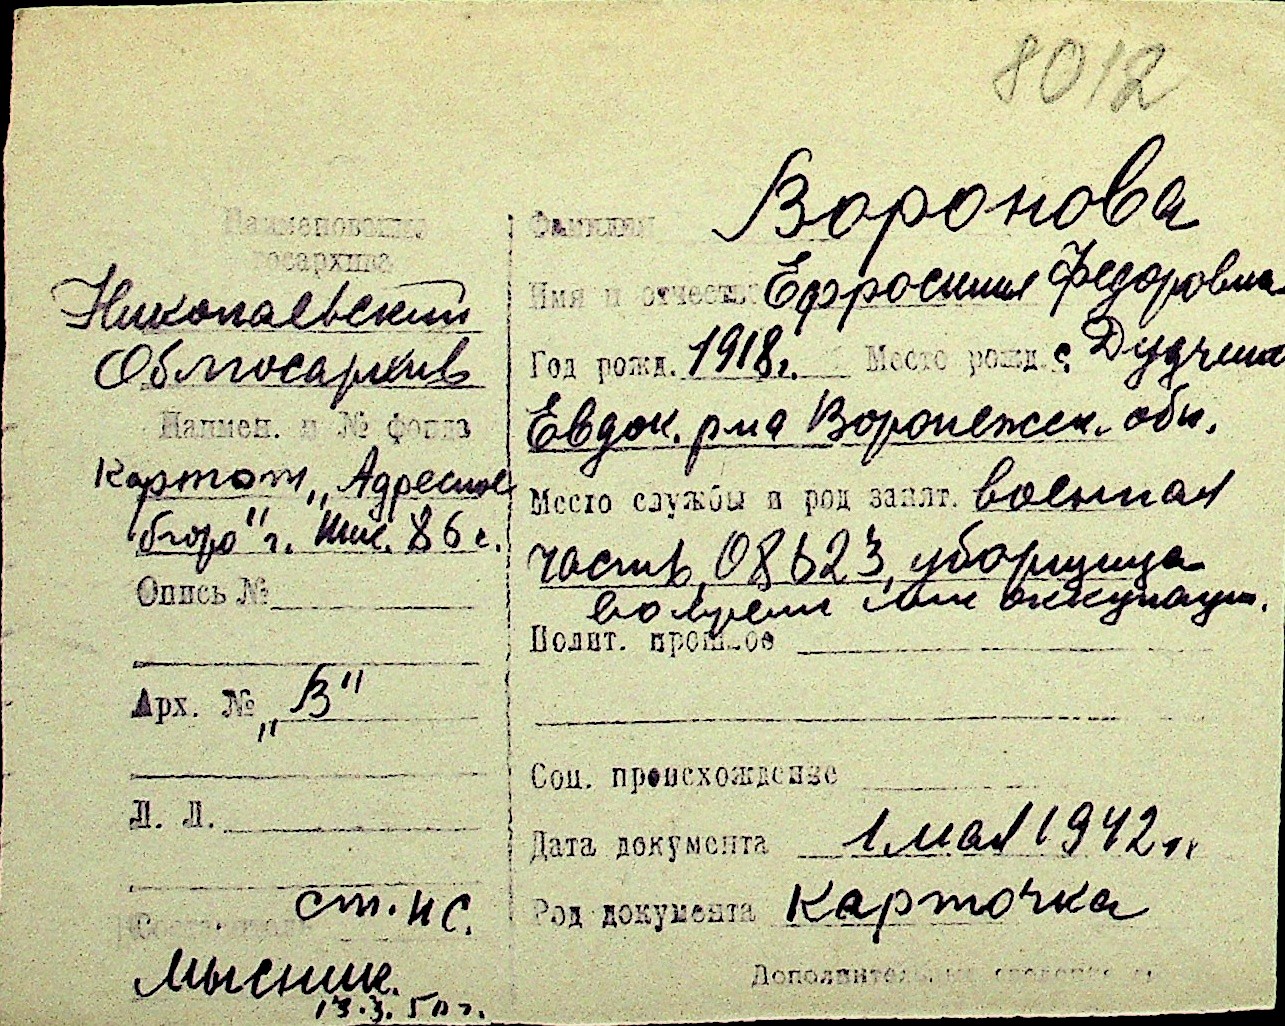 8012
Наименование
госархива
Николаевский
Облгосархив
Наимен. и № фонда
Картот. „Адресное
бюро" г. Ник. 86 с.
Опись №
Арх. № „В"
Л. Л.
Составитель ст. НС.
Мысник.
13.3.50 г.
Фамилия Воронова
Имя и отчество Ефросиния Федоровна
Год рожд. 1918 г. Место рожд. с.
Евдок. р-на Воронежск. обл.
Место службы и род занят. военная
часть 08623, уборщица
во время оккупации.
Полит. прошлое
Соц. происхождение
Дата документа 1 мая 1942 г.
Род документа Карточка
Дополнительные сведения